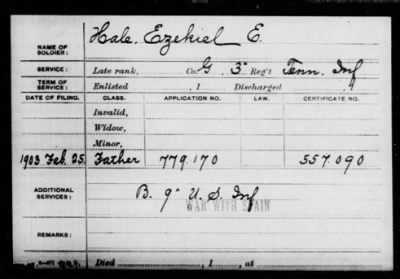 NAME OF SOLDIER: Hale, Ezekiel E.
SERVICE: Late rank, Co. G, 3" Reg't Tenn. Inf
TERM OF SERVICE: Enlisted , 1 Discharged , 1
DATE OF FILING. CLASS. APPLICATION NO. LAW. CERTIFICATE NO.
Invalid,
Widow,
Minor,
1903 Feb. 25. Father 779.170 557.090
ADDITIONAL SERVICES: B. 9" U.S Inf
WAR WITH SPAIN
REMARKS:
Died , 1 , at